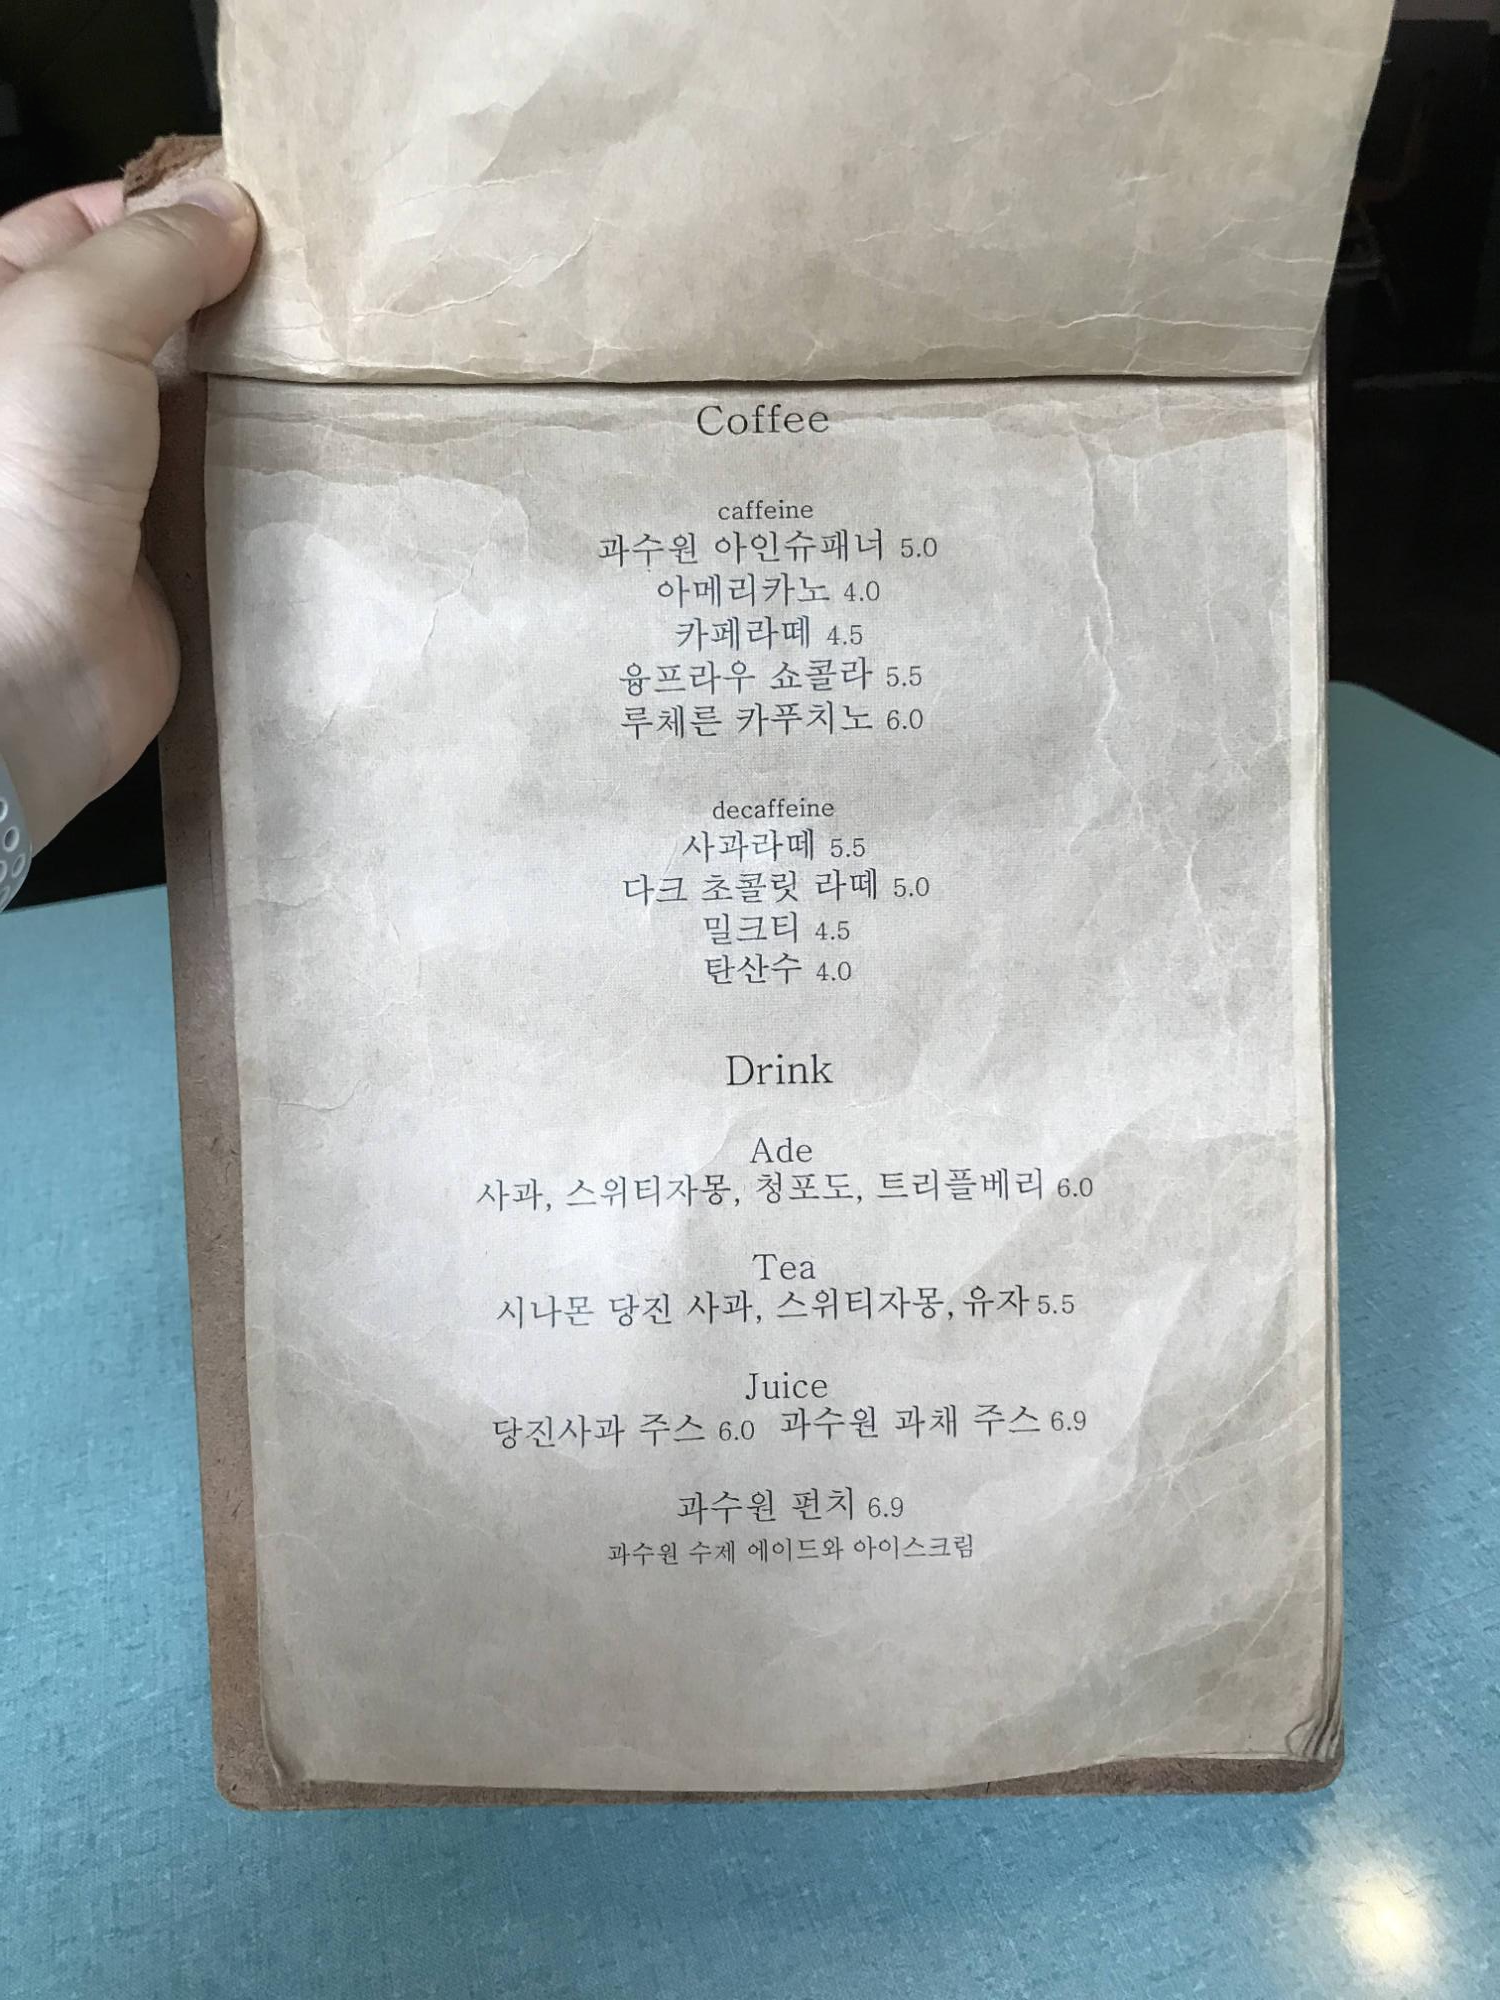 Coffee
caffeine
과수원 아인슈패너 5.0
아메리카노 4.0
카페라떼 4.5
융프라우 쇼콜라 5.5
루체른 카푸치노 6.0
decaffeine
사과라떼 5.5
다크 초콜릿 라떼 5.0
밀크티 4.5
탄산수 4.0
Drink
Ade
사과, 스위티자몽, 청포도, 트리플베리 6.0
Tea
시나몬 당진 사과, 스위티자몽, 유자 5.5
Juice
당진사과 주스 6.0 과수원 과채 주스 6.9
과수원 펀치 6.9
과수원 수제 에이드와 아이스크림